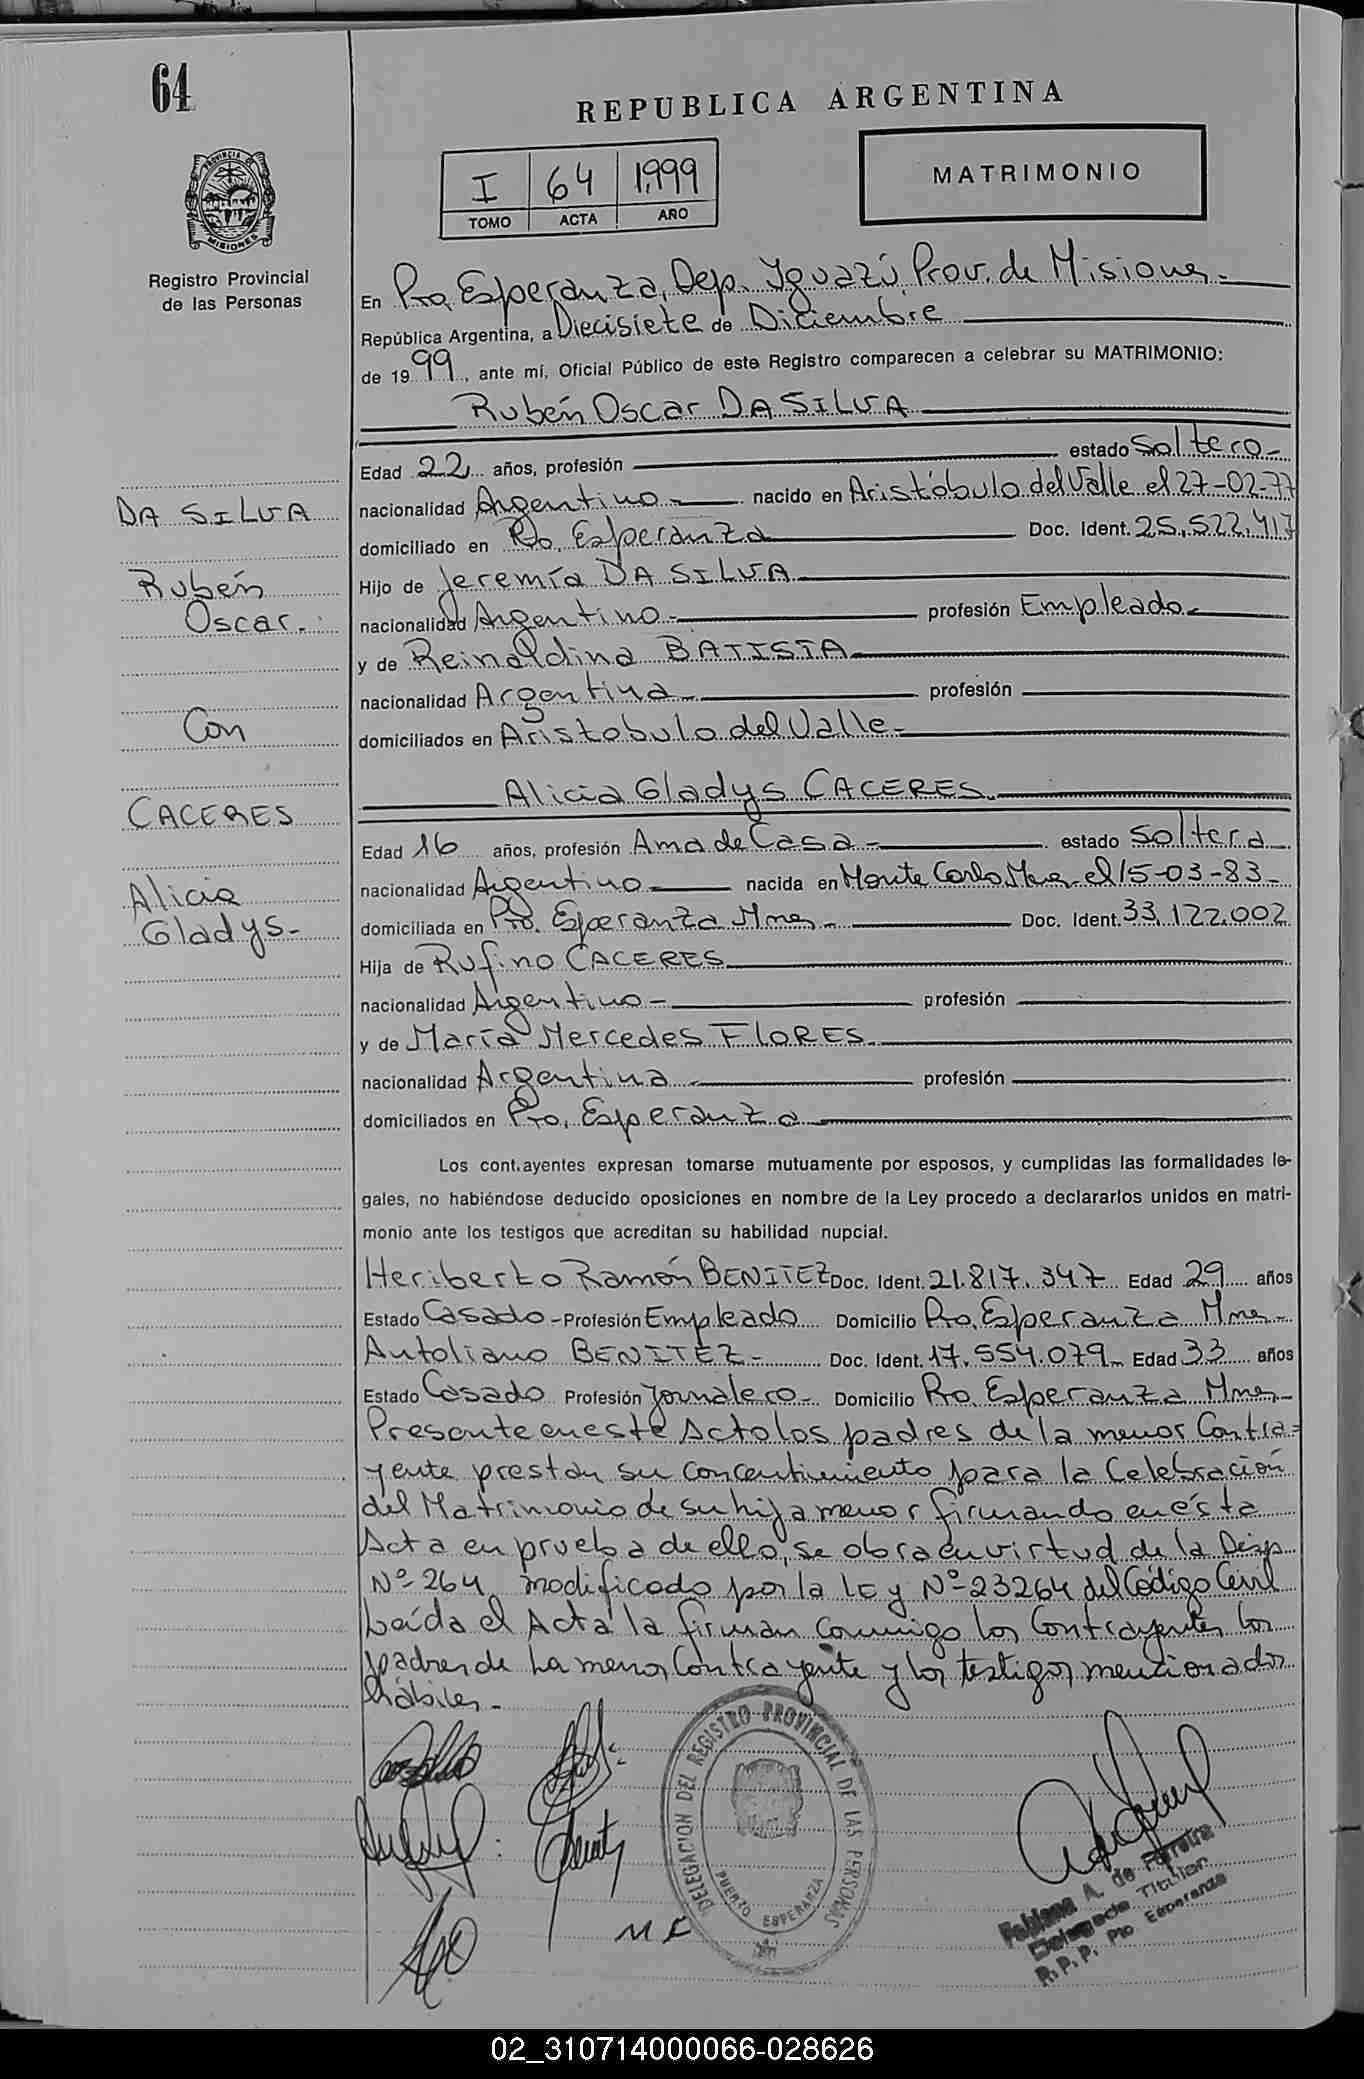 64
REPUBLICA ARGENTINA
I 64 1,999
TOMO ACTA AÑO
MATRIMONIO
PROVINCIA DE MISIONES
Registro Provincial
de las Personas
En Pto. Esperanza, Dep. Iguazú, Prov. de Misiones.-
República Argentina, a Diecisiete de Diciembre
de 1999, ante mí, Oficial Público de este Registro comparecen a celebrar su MATRIMONIO:
Rubén Oscar DA SILVA
Edad 22 años, profesión estado Soltero-
nacionalidad Argentino- nacido en Aristóbulo del Valle el 27-02-77
domiciliado en Pto. Esperanza Doc. Ident. 25.522.417
Hijo de Jeremía DA SILVA
nacionalidad Argentino.- profesión Empleado-
y de Reinaldina BATISTA
nacionalidad Argentina- profesión
domiciliados en Aristobulo del Valle-
Alicia Gladys CACERES.
Edad 16 años, profesión Ama de Casa- estado Soltera
nacionalidad Argentino nacida en Monte Carlo Mnes el 15-03-83-
domiciliada en Pto. Esperanza Mnes- Doc. Ident. 33.122.002
Hija de Rufino CACERES
nacionalidad Argentino- profesión
y de María Mercedes FLORES.
nacionalidad Argentina profesión
domiciliados en Pto. Esperanza
DA SILVA
Rubén
Oscar.
Con
CACERES
Alicia
Gladys-
Los cont.ayentes expresan tomarse mutuamente por esposos, y cumplidas las formalidades le-
gales, no habiéndose deducido oposiciones en nombre de la Ley procedo a declararlos unidos en matri-
monio ante los testigos que acreditan su habilidad nupcial.
Heriberto Ramón BENITEZ Doc. Ident. 21.817.347 Edad 29 años
Estado Casado- Profesión Empleado Domicilio Pto. Esperanza Mnes-
Antoliano BENITEZ- Doc. Ident. 17.554.079- Edad 33 años
Estado Casado Profesión Jornalero- Domicilio Pto. Esperanza Mnes-
Presente en este Acto los padres de la menor Contra=
yente prestan su concentimiento para la Celebración
del Matrimonio de su hija menor firmando en ésta
Acta en prueba de ello, se obra en virtud de la Disp.
Nº 264 modificado por la Ley Nº 23264 del Código Civil
Leída el Acta la firman conmigo los Contrayentes los
padres de La menor Contrayente y los testigos mencionados
hábiles-
M F
DELEGACION DEL REGISTRO PROVINCIAL DE LAS PERSONAS
PUERTO ESPERANZA
Fabiana A. de Ferreira
Delegada Titular
R.P.P. Pto Esperanza
02_310714000066-028626